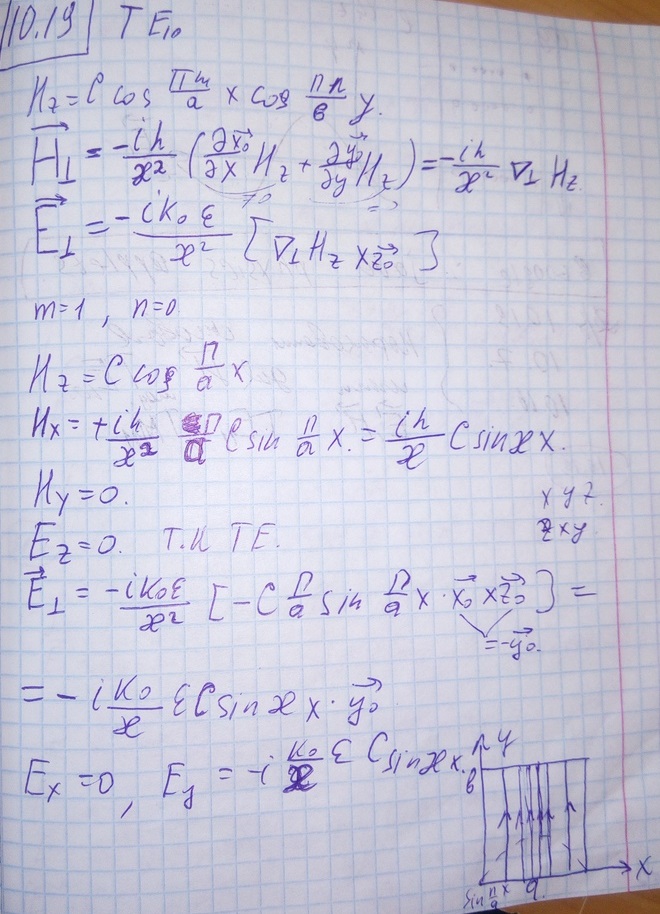 10.19 TE₁₀
H_z = C cos πm/a x cos πn/b y.
H⃗_⊥ = -ih/æ² (∂x⃗₀/∂x H_z + ∂y⃗₀/∂y H_z) = -ih/æ² ∇_⊥ H_z
E⃗_⊥ = -ik₀ε/æ² [∇_⊥ H_z × z⃗₀]
m=1, n=0
H_z = C cos π/a x
H_x = +ih/æ² π/a C sin π/a x. = ih/æ C sin æx.
H_y = 0.
x y z.
E_z = 0. т.к TE.
z x y
E⃗_⊥ = -ik₀ε/æ² [-C π/a sin π/a x · x⃗₀ × z⃗₀] =
= -y⃗₀.
= -i k₀/æ ε C sin æ x · y⃗₀
E_x = 0, E_y = -i k₀/æ ε C sin æ x.
y
b
x
sin π/a x
a.